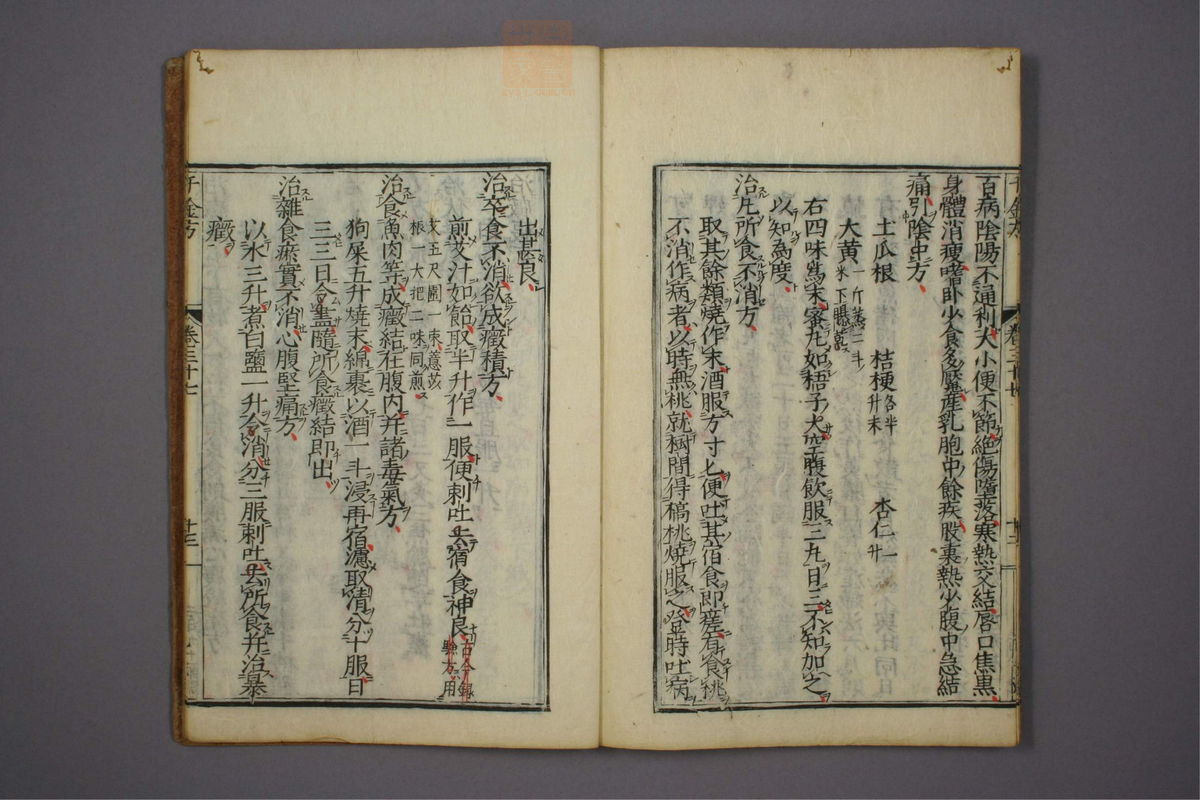 百病陰陽不通利大小便不節絶傷墮落寒熱交結唇口焦黒
身體消瘦嗜卧少食多厭産乳胞中餘疾股裏熱少腹中急結
痛引陰中方
土瓜根 桔梗各半升末 杏仁一升
大黄一斤蒸二斗米下曝乾
右四味為末蜜丸如梧子大空腹飲服三丸日三不知加之
以知為度
治凡所食不消方
取其餘類燒作末酒服方寸匕便吐甚宿食即瘥有食桃
不消作病者以時無桃就樹間得槁桃燒服之登時吐病
千金方 卷三十七
出甚良
治卒食不消欲成癥積方
煎艾汁如飴取半升作一服便刺吐去宿食神良古今録驗方用
艾五尺圍一束薏苡根一大把二味同煎
治食魚肉等成癥結在腹内并諸毒氣方
狗屎五升燒末綿裹以酒一斗浸再宿濾取清分十服日
三三日令盡隨所食癥結即出
治雜食瘀實不消心腹堅痛方
以水三升煮白鹽一升令消分三服刺吐去所食并治暴
癥
千金方 卷三十七 十三